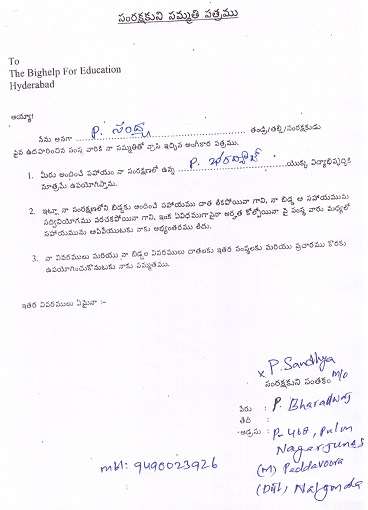 సంరక్షకుని సమ్మతి పత్రము
To
The Bighelp For Education
Hyderabad
అయ్యా!
నేను అనగా P. సంధ్య తండ్రి/తల్లి/సంరక్షకుడు
పైన ఉదహరించిన సంస్థ వారికి నా సమ్మతితో వ్రాసి ఇచ్చిన అంగీకార పత్రము.
1. మీరు అందించే సహాయం నా సంరక్షణలో ఉన్న P. భరద్వాజ్ యొక్క విద్యాభివృద్ధికి
మాత్రమే ఉపయోగిస్తాను.
2. ఇట్లా నా సంరక్షణలోని బిడ్డకు అందించే సహాయము దాత లేకపోయినా గాని, నా బిడ్డ ఆ సహాయమును
సద్వినియోగము పరచకపోయినా గాని, ఇంక ఏవిధముగానైనా అర్హత కోల్పోయినా పై సంస్థ వారు మధ్యలో
సహాయమును ఆపివేయుటకు నాకు అభ్యంతరము లేదు.
3. నా వివరములు మరియు నా బిడ్డల వివరములు దాతలకు ఇతర సంస్థలకు మరియు ప్రచారము కొరకు
ఉపయోగించుకొనుటకు నాకు సమ్మతము.
ఇతర వివరములు ఏమైనా :-
x P. Sandhya
సంరక్షకుని సంతకం M/o
పేరు : P. Bharadwaj
తేదీ :
అడ్రసు : P-468, Pylon
Nagarjuna
(M) Peddavoora
(Dist), Nalgonda
mbl: 9490023926